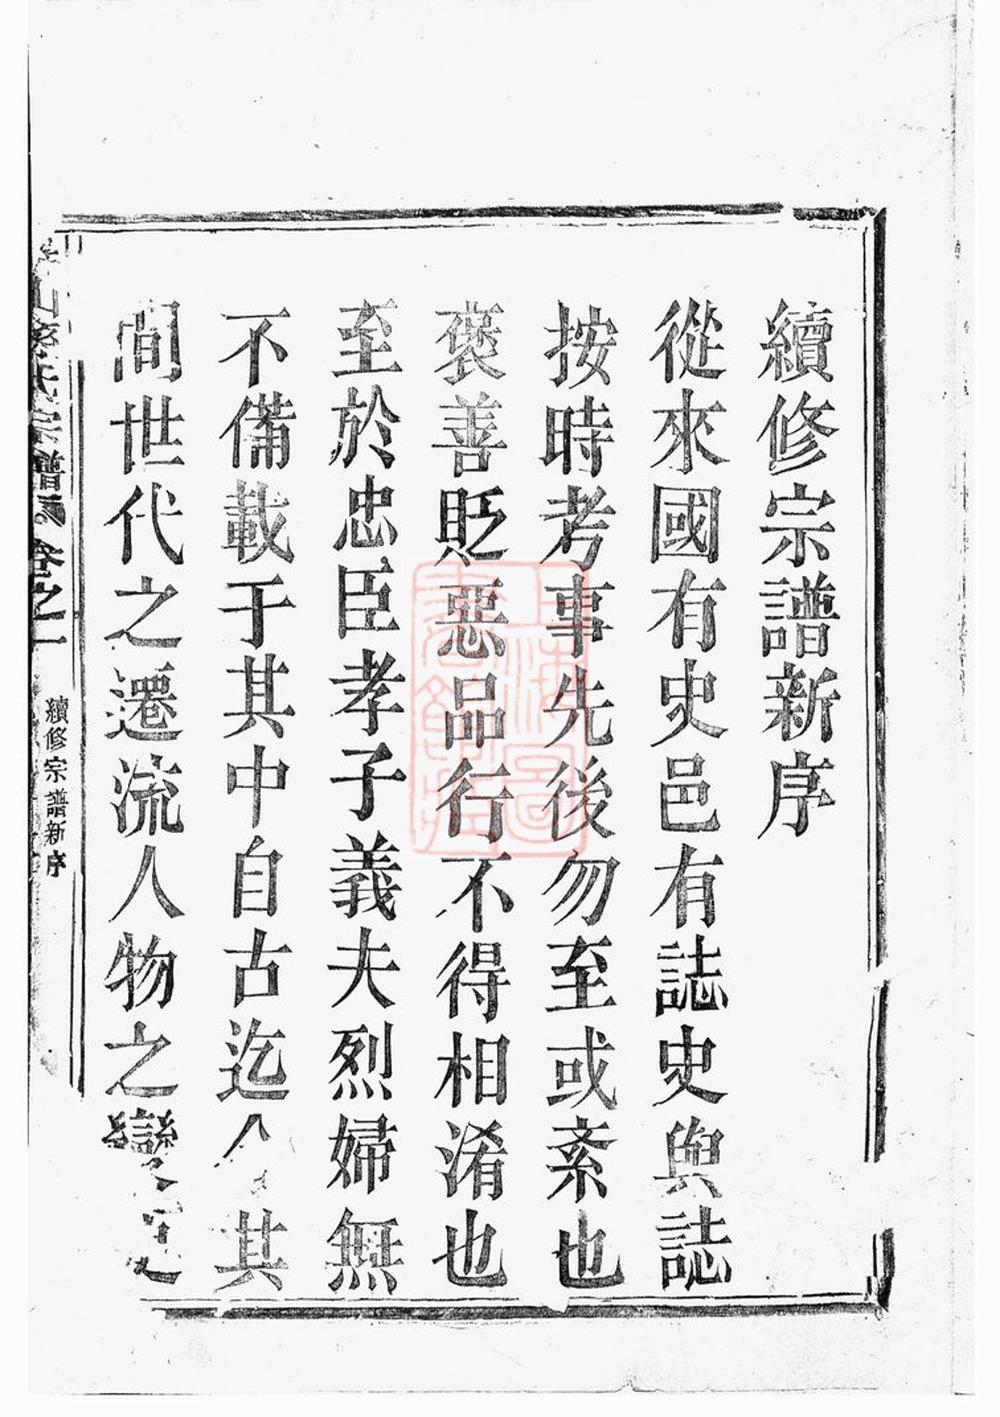 續修宗譜新序
從來國有史邑有誌史與誌
按時考事先後勿至或紊也
褒善貶惡品行不得相淆也
至於忠臣孝子義夫烈婦無
不備載于其中自古迄今其
間世代之遷流人物之變
山 氏宗譜 卷之一
續修宗譜新序
上海圖書館藏